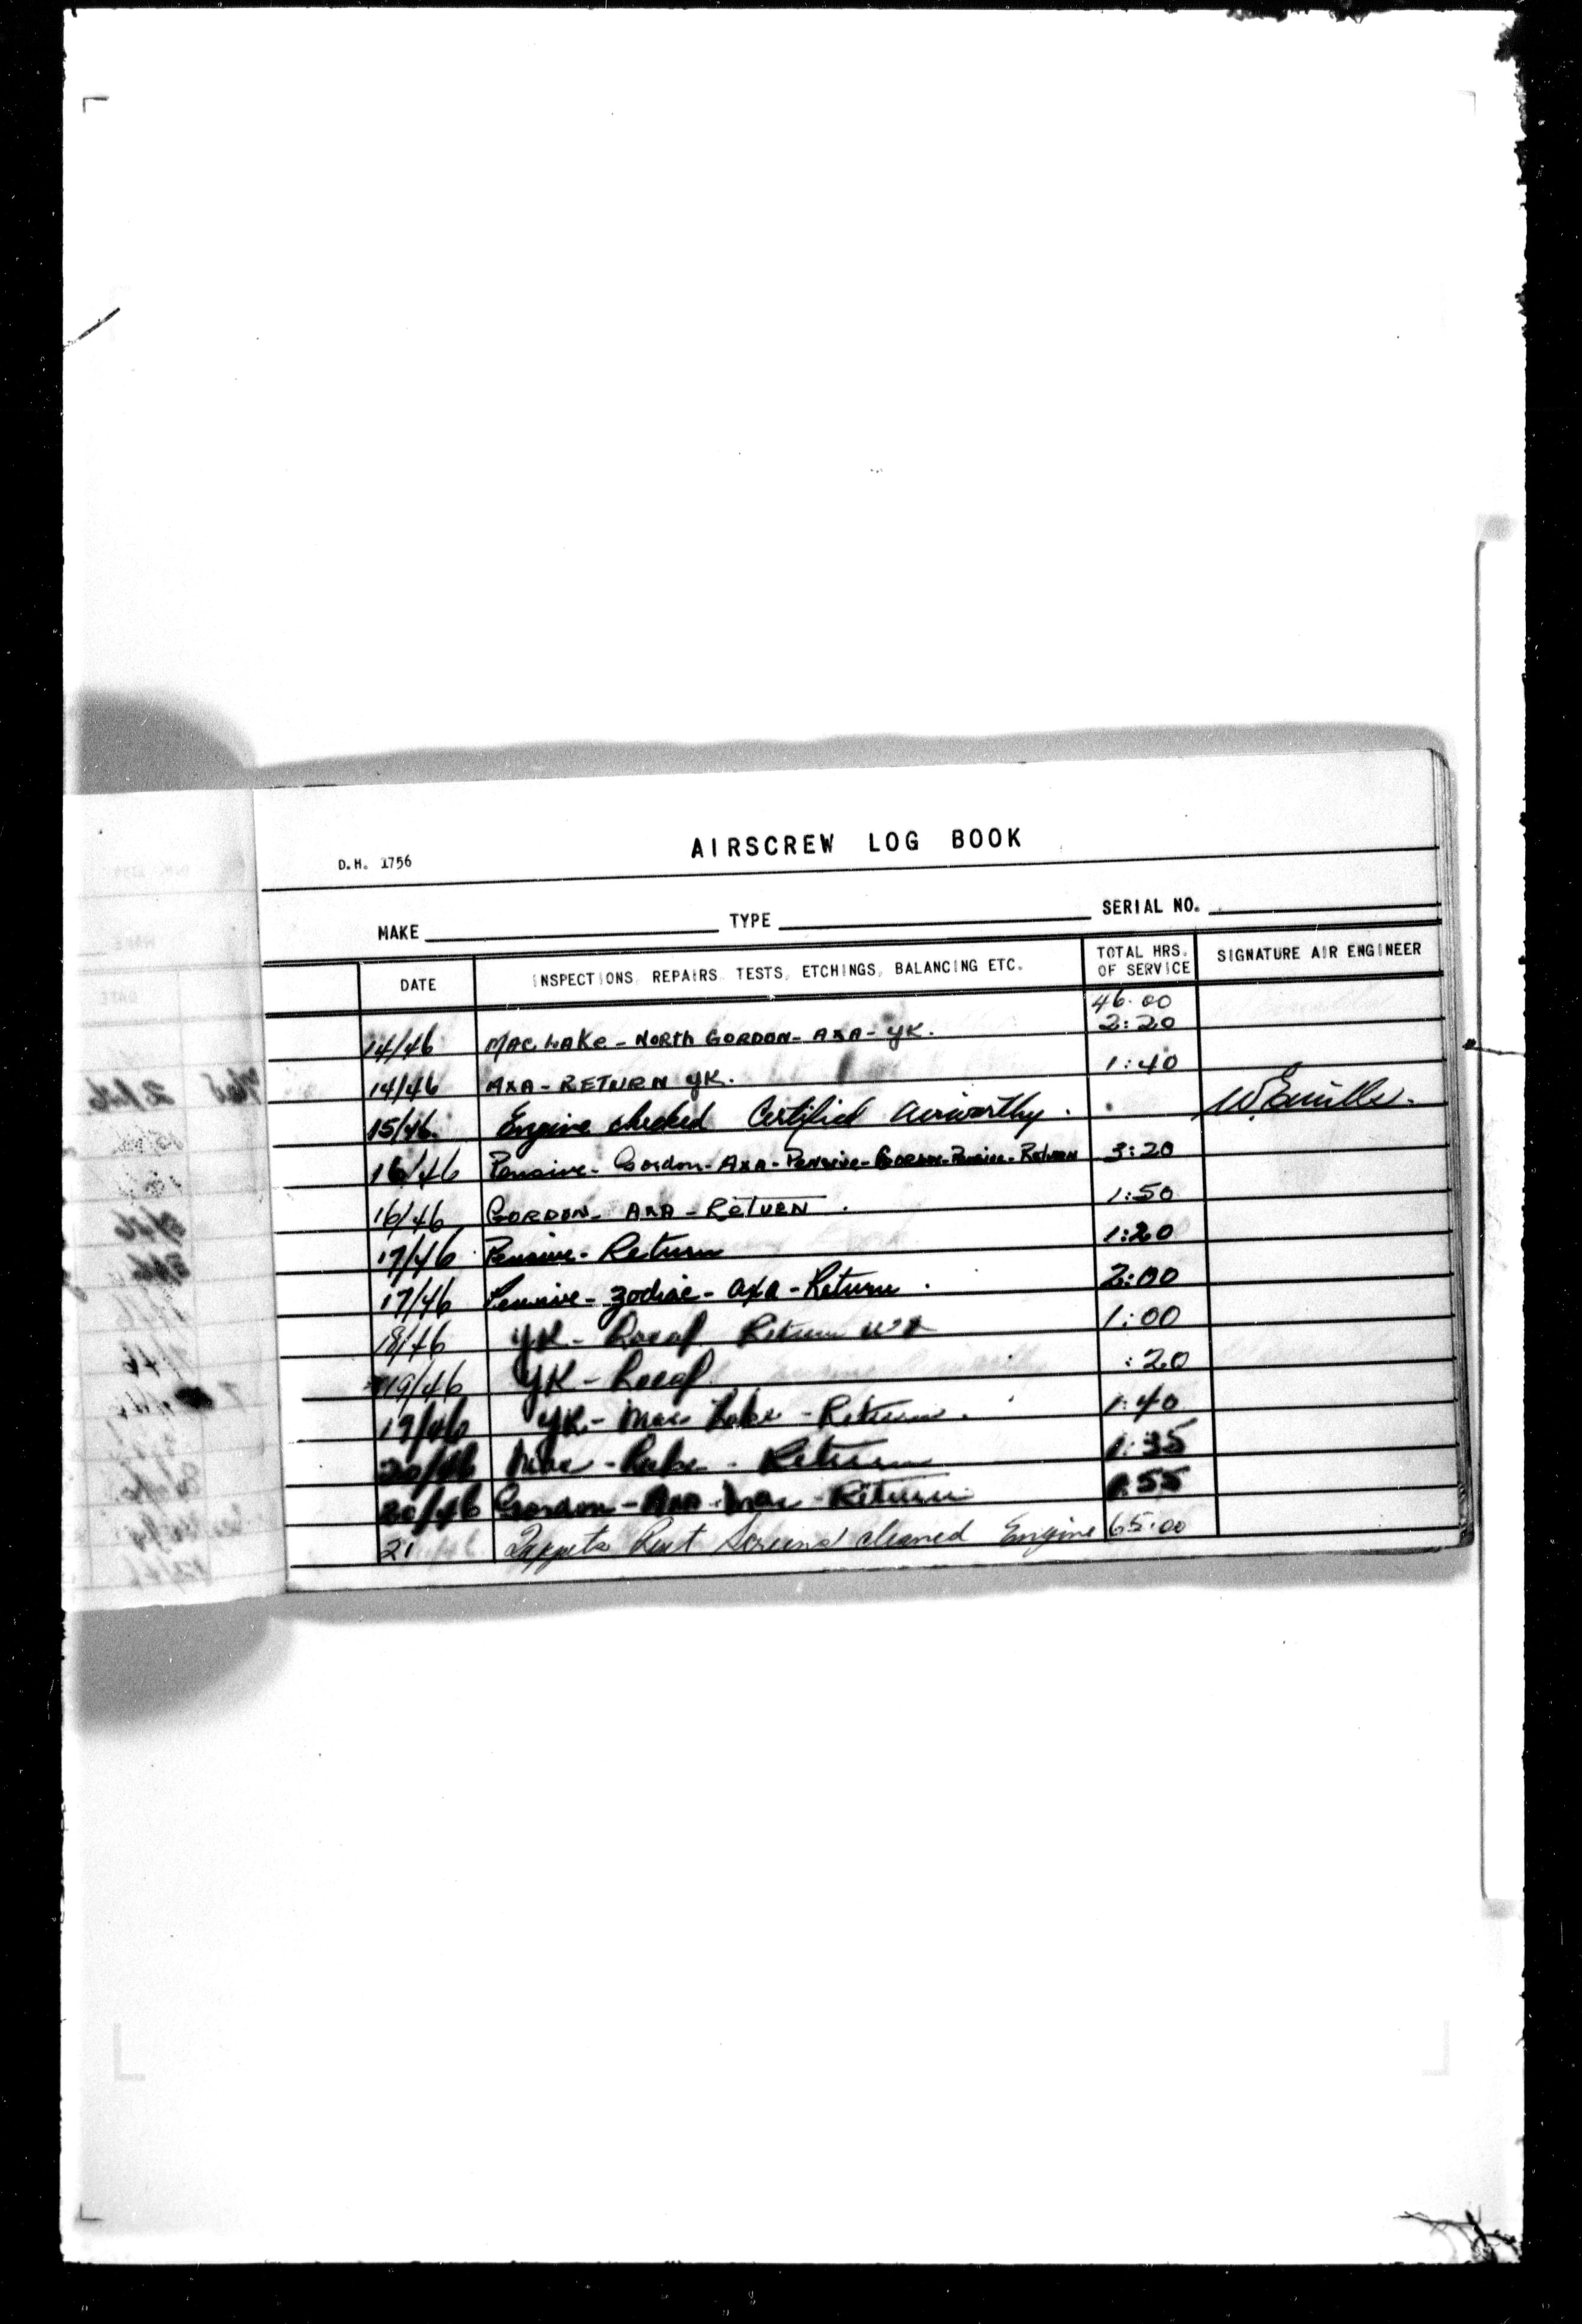 AIRSCREW LOG BOOK
D.H. 1756
MAKE TYPE SERIAL NO.
DATE INSPECTIONS, REPAIRS, TESTS, ETCHINGS, BALANCING ETC. TOTAL HRS. OF SERVICE SIGNATURE AIR ENGINEER
46.00
14/46 MAC LAKE - NORTH GORDON - AXA - YK. 2:20
14/46 AXA - RETURN YK. 1:40
15/46 Engine checked Certified airworthy.
16/46 Pensive - Gordon - AXA - Pensive - Gordon - Pensive - Return 3:20
16/46 GORDON - AXA - RETURN. 1:50
17/46 Pensive - Return 1:20
17/46 Pensive - Zodiac - AXA - Return. 2:00
18/46 YK - Local Return 1:00
19/46 YK - Local :20
19/46 YK - Mac Lake - Return. 1:40
20/46 Mac - Lake - Return 1:35
20/46 Gordon - AXA - Mac - Return :55
21 Tappets Screens cleaned Engine 65:00